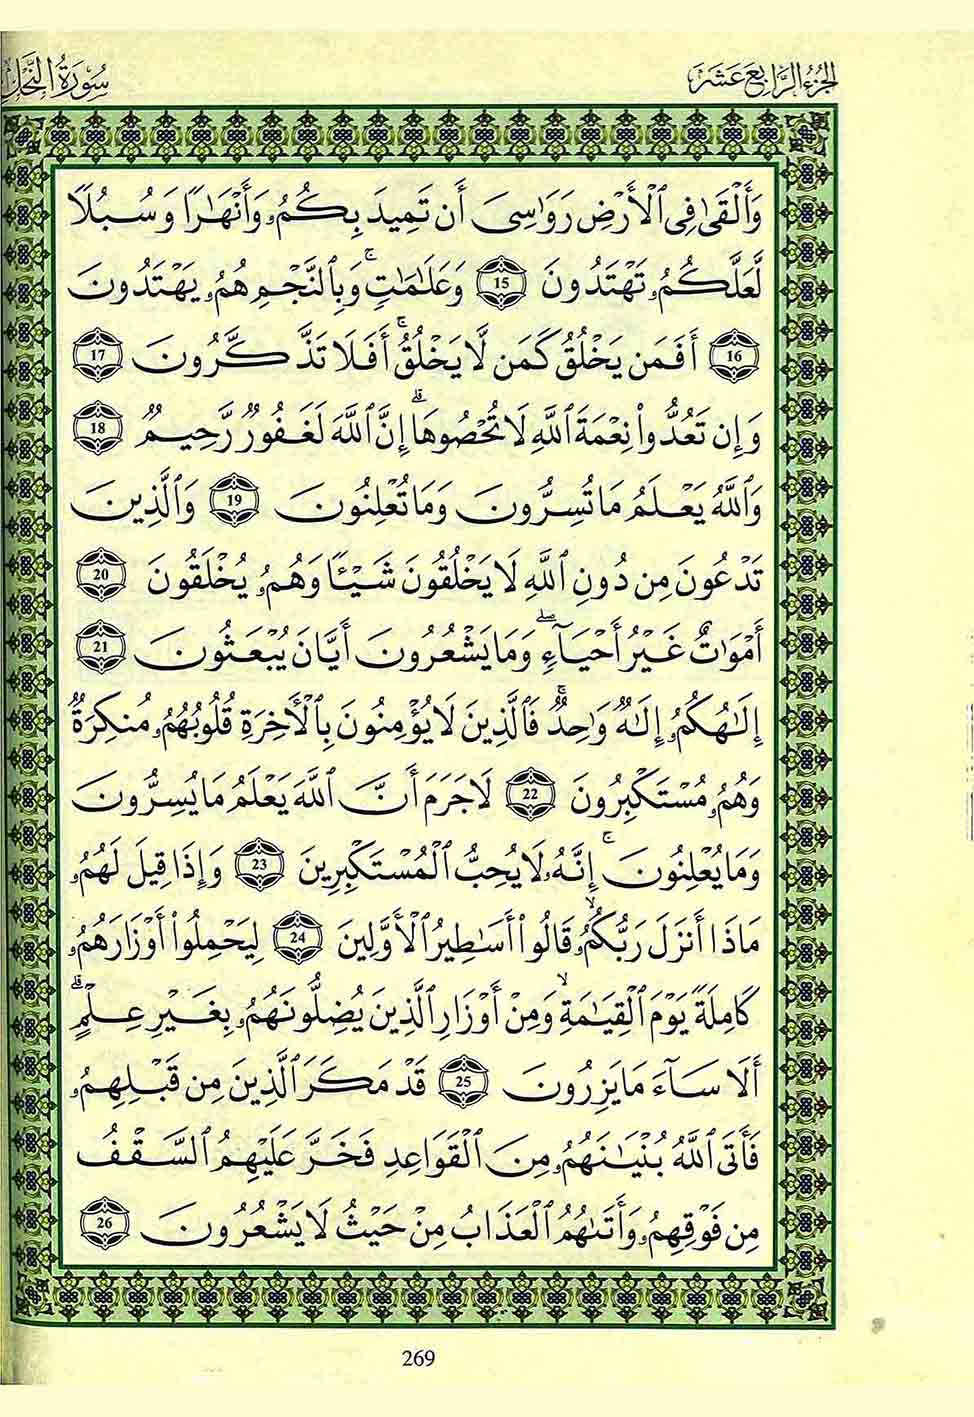 الجزء الرابع عشر
سورة النحل
وَأَلْقَىٰ فِي ٱلْأَرْضِ رَوَٰسِيَ أَن تَمِيدَ بِكُمُۥ وَأَنْهَٰرًا وَسُبُلًا
لَّعَلَّكُمُۥ تَهْتَدُونَ 15 وَعَلَٰمَٰتٍۚ وَبِٱلنَّجْمِ هُمُۥ يَهْتَدُونَ
16 أَفَمَن يَخْلُقُ كَمَن لَّا يَخْلُقُۚ أَفَلَا تَذَّكَّرُونَ 17
وَإِن تَعُدُّوا۟ نِعْمَةَ ٱللَّهِ لَا تُحْصُوهَاۗ إِنَّ ٱللَّهَ لَغَفُورٌ رَّحِيمٌ 18
وَٱللَّهُ يَعْلَمُ مَا تُسِرُّونَ وَمَا تُعْلِنُونَ 19 وَٱلَّذِينَ
تَدْعُونَ مِن دُونِ ٱللَّهِ لَا يَخْلُقُونَ شَيْـًٔا وَهُمُۥ يُخْلَقُونَ 20
أَمْوَٰتٌ غَيْرُ أَحْيَآءٍۖ وَمَا يَشْعُرُونَ أَيَّانَ يُبْعَثُونَ 21
إِلَٰهُكُمُۥ إِلَٰهٌ وَٰحِدٌۚ فَٱلَّذِينَ لَا يُؤْمِنُونَ بِٱلْأَخِرَةِ قُلُوبُهُمُۥ مُنكِرَةٌ
وَهُمُۥ مُسْتَكْبِرُونَ 22 لَا جَرَمَ أَنَّ ٱللَّهَ يَعْلَمُ مَا يُسِرُّونَ
وَمَا يُعْلِنُونَۚ إِنَّهُۥ لَا يُحِبُّ ٱلْمُسْتَكْبِرِينَ 23 وَإِذَا قِيلَ لَهُمُۥ
مَاذَا أَنزَلَ رَبُّكُمُۥۙ قَالُوا۟ أَسَٰطِيرُ ٱلْأَوَّلِينَ 24 لِيَحْمِلُوا۟ أَوْزَارَهُمُۥ
كَامِلَةً يَوْمَ ٱلْقِيَٰمَةِۙ وَمِنْ أَوْزَارِ ٱلَّذِينَ يُضِلُّونَهُمُۥ بِغَيْرِ عِلْمٍۗ
أَلَا سَآءَ مَا يَزِرُونَ 25 قَدْ مَكَرَ ٱلَّذِينَ مِن قَبْلِهِمُۥ
فَأَتَى ٱللَّهُ بُنْيَٰنَهُمُۥ مِنَ ٱلْقَوَاعِدِ فَخَرَّ عَلَيْهِمُ ٱلسَّقْفُ
مِن فَوْقِهِمُۥ وَأَتَىٰهُمُ ٱلْعَذَابُ مِنْ حَيْثُ لَا يَشْعُرُونَ 26
269